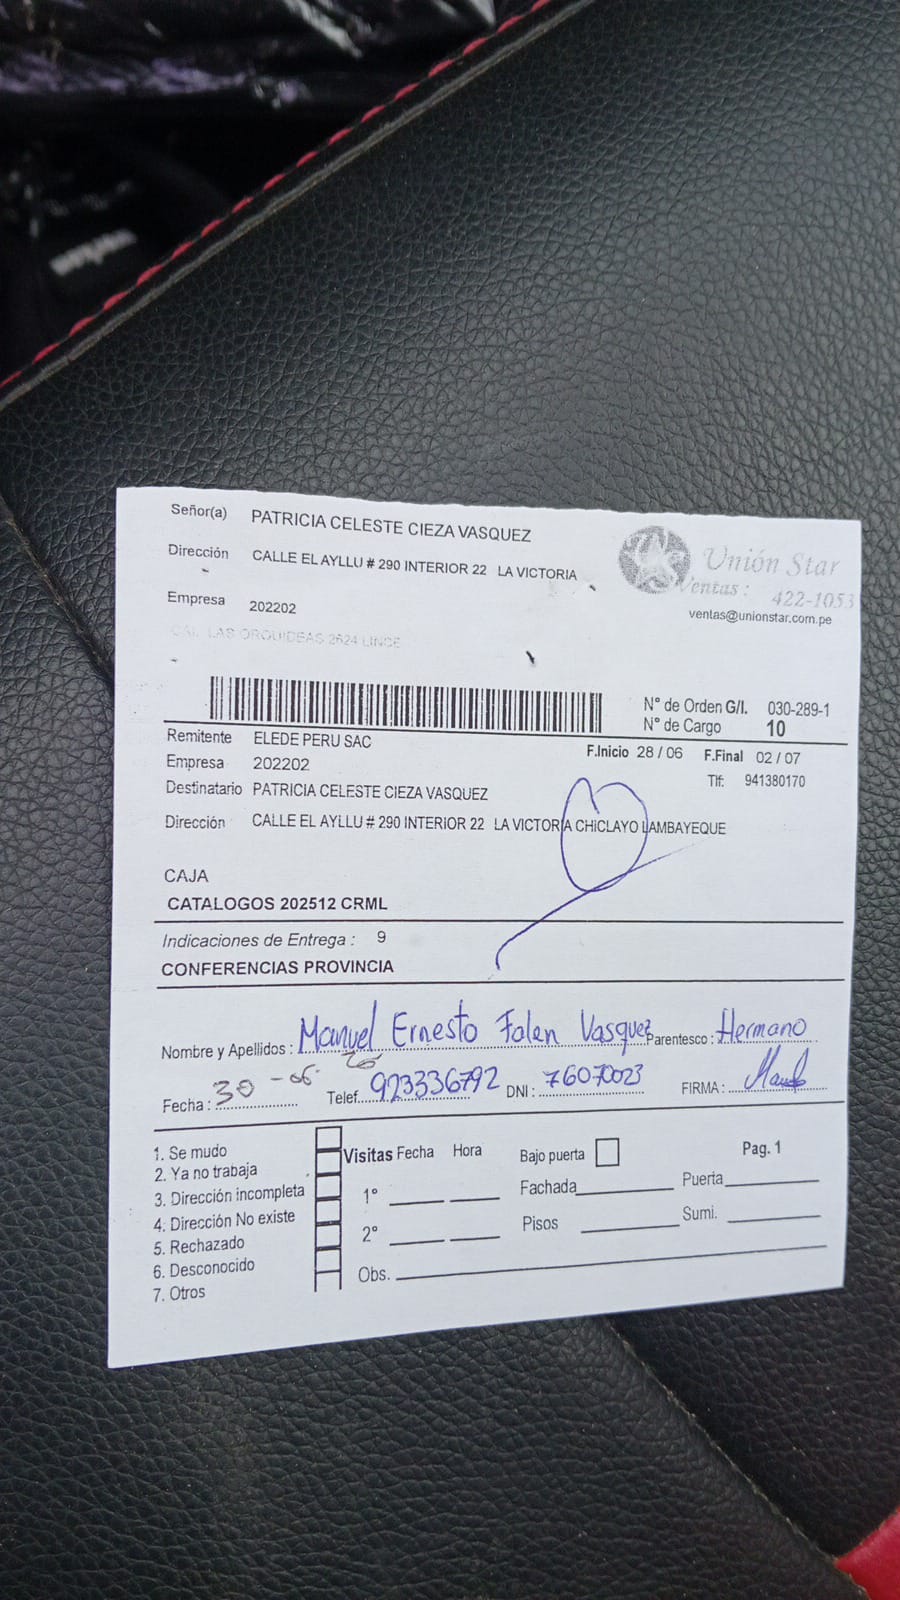 Señor(a) PATRICIA CELESTE CIEZA VASQUEZ
Dirección CALLE EL AYLLU # 290 INTERIOR 22 LA VICTORIA
Unión Star
Ventas: 422-1053
ventas@unionstar.com.pe
Empresa 202202
CAL LAS ORQUIDEAS 2624 LINCE
N° de Orden G/I. 030-289-1
N° de Cargo 10
Remitente ELEDE PERU SAC
F.Inicio 28 / 06 F.Final 02 / 07
Empresa 202202
Tlf: 941380170
Destinatario PATRICIA CELESTE CIEZA VASQUEZ
Dirección CALLE EL AYLLU # 290 INTERIOR 22 LA VICTORIA CHICLAYO LAMBAYEQUE
CAJA
CATALOGOS 202512 CRML
Indicaciones de Entrega : 9
CONFERENCIAS PROVINCIA
Nombre y Apellidos : Manuel Ernesto Falen Vasquez Parentesco : Hermano
Fecha : 30 - 06. Telef. 923336792 DNI : 76070023 FIRMA :
1. Se mudo
2. Ya no trabaja
3. Dirección incompleta
4. Dirección No existe
5. Rechazado
6. Desconocido
7. Otros
Visitas Fecha Hora
1°
2°
Obs.
Bajo puerta
Fachada
Pisos
Pag. 1
Puerta
Sumi.